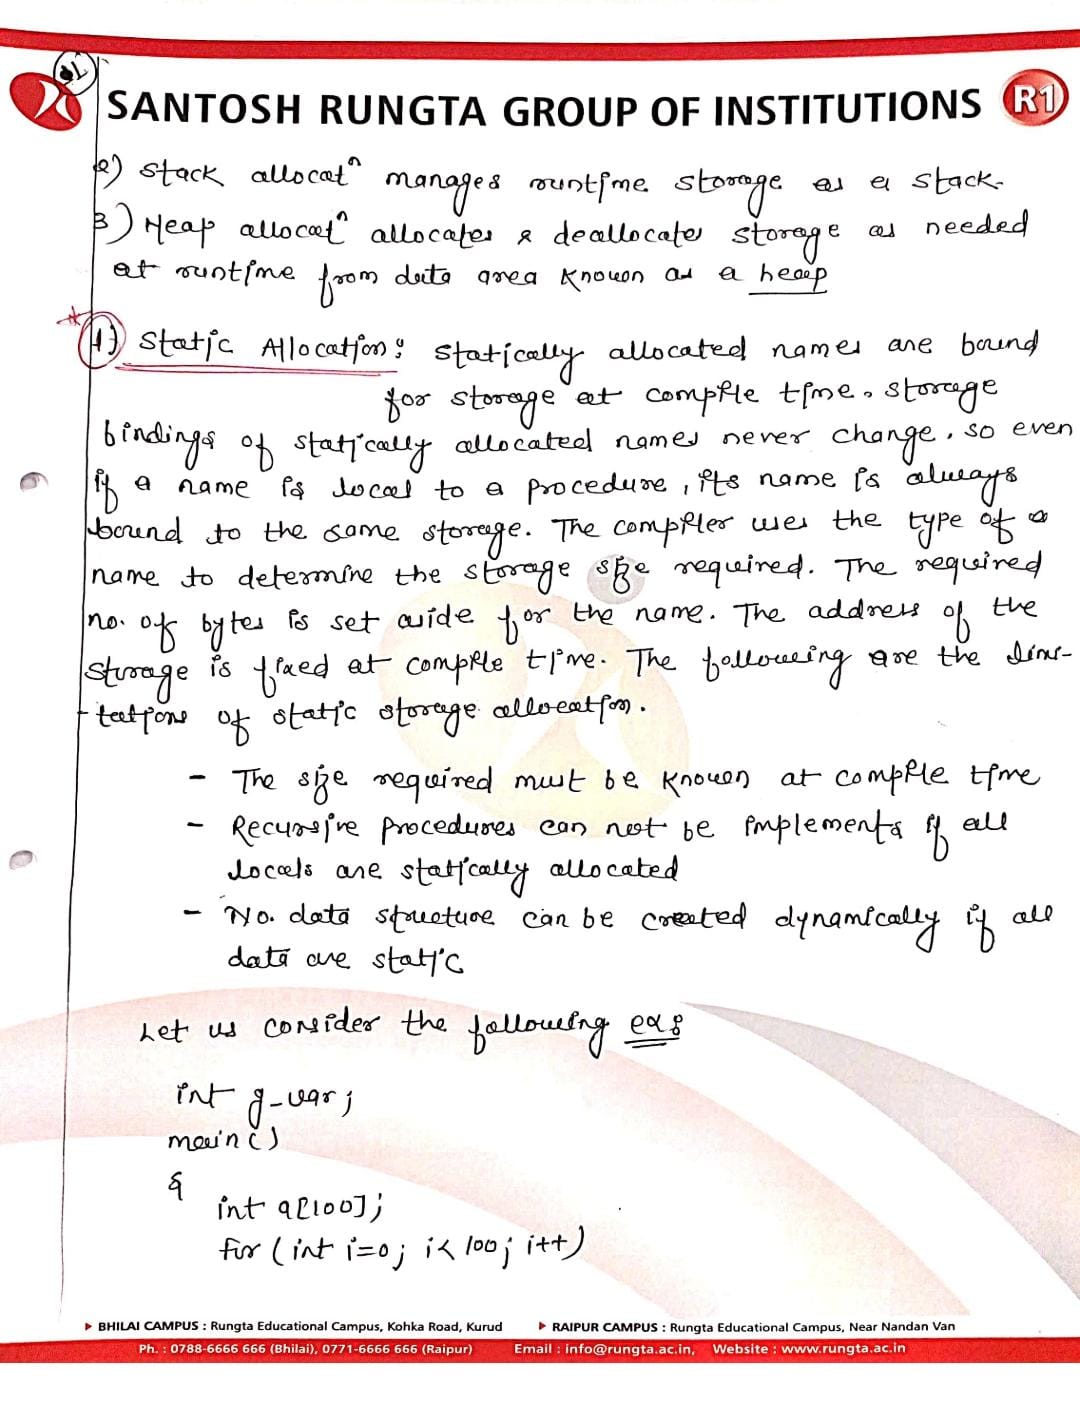 SANTOSH RUNGTA GROUP OF INSTITUTIONS R1
2) Stack allocatⁿ manages runtime storage as a stack.
3) Heap allocatⁿ allocates & deallocates storage as needed
at runtime from data area known as a heap
1) Static Allocation: Statically allocated names are bound
for storage at compile time. Storage
bindings of statically allocated names never change. so even
if a name is local to a procedure, its name is always
bound to the same storage. The compiler uses the type of a
name to determine the storage size required. The required
no. of bytes is set aside for the name. The address of the
storage is fixed at compile time. The following are the limi-
tations of static storage allocation.
- The size required must be known at compile time
- Recursive procedures can not be implements if all
locals are statically allocated
- No. data structure can be created dynamically if all
data are static
Let us consider the following ex:
int g_var;
main()
{
int a[100];
for (int i=0; i< 100; i++)
BHILAI CAMPUS : Rungta Educational Campus, Kohka Road, Kurud RAIPUR CAMPUS : Rungta Educational Campus, Near Nandan Van
Ph. : 0788-6666 666 (Bhilai), 0771-6666 666 (Raipur) Email : info@rungta.ac.in, Website : www.rungta.ac.in